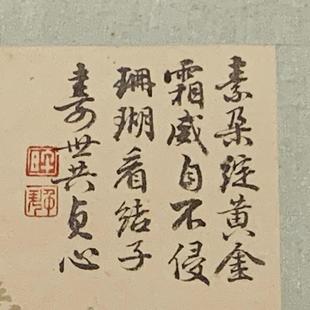 素朵綻黄金
霜威自不侵
珊瑚看結子
壽世共貞心